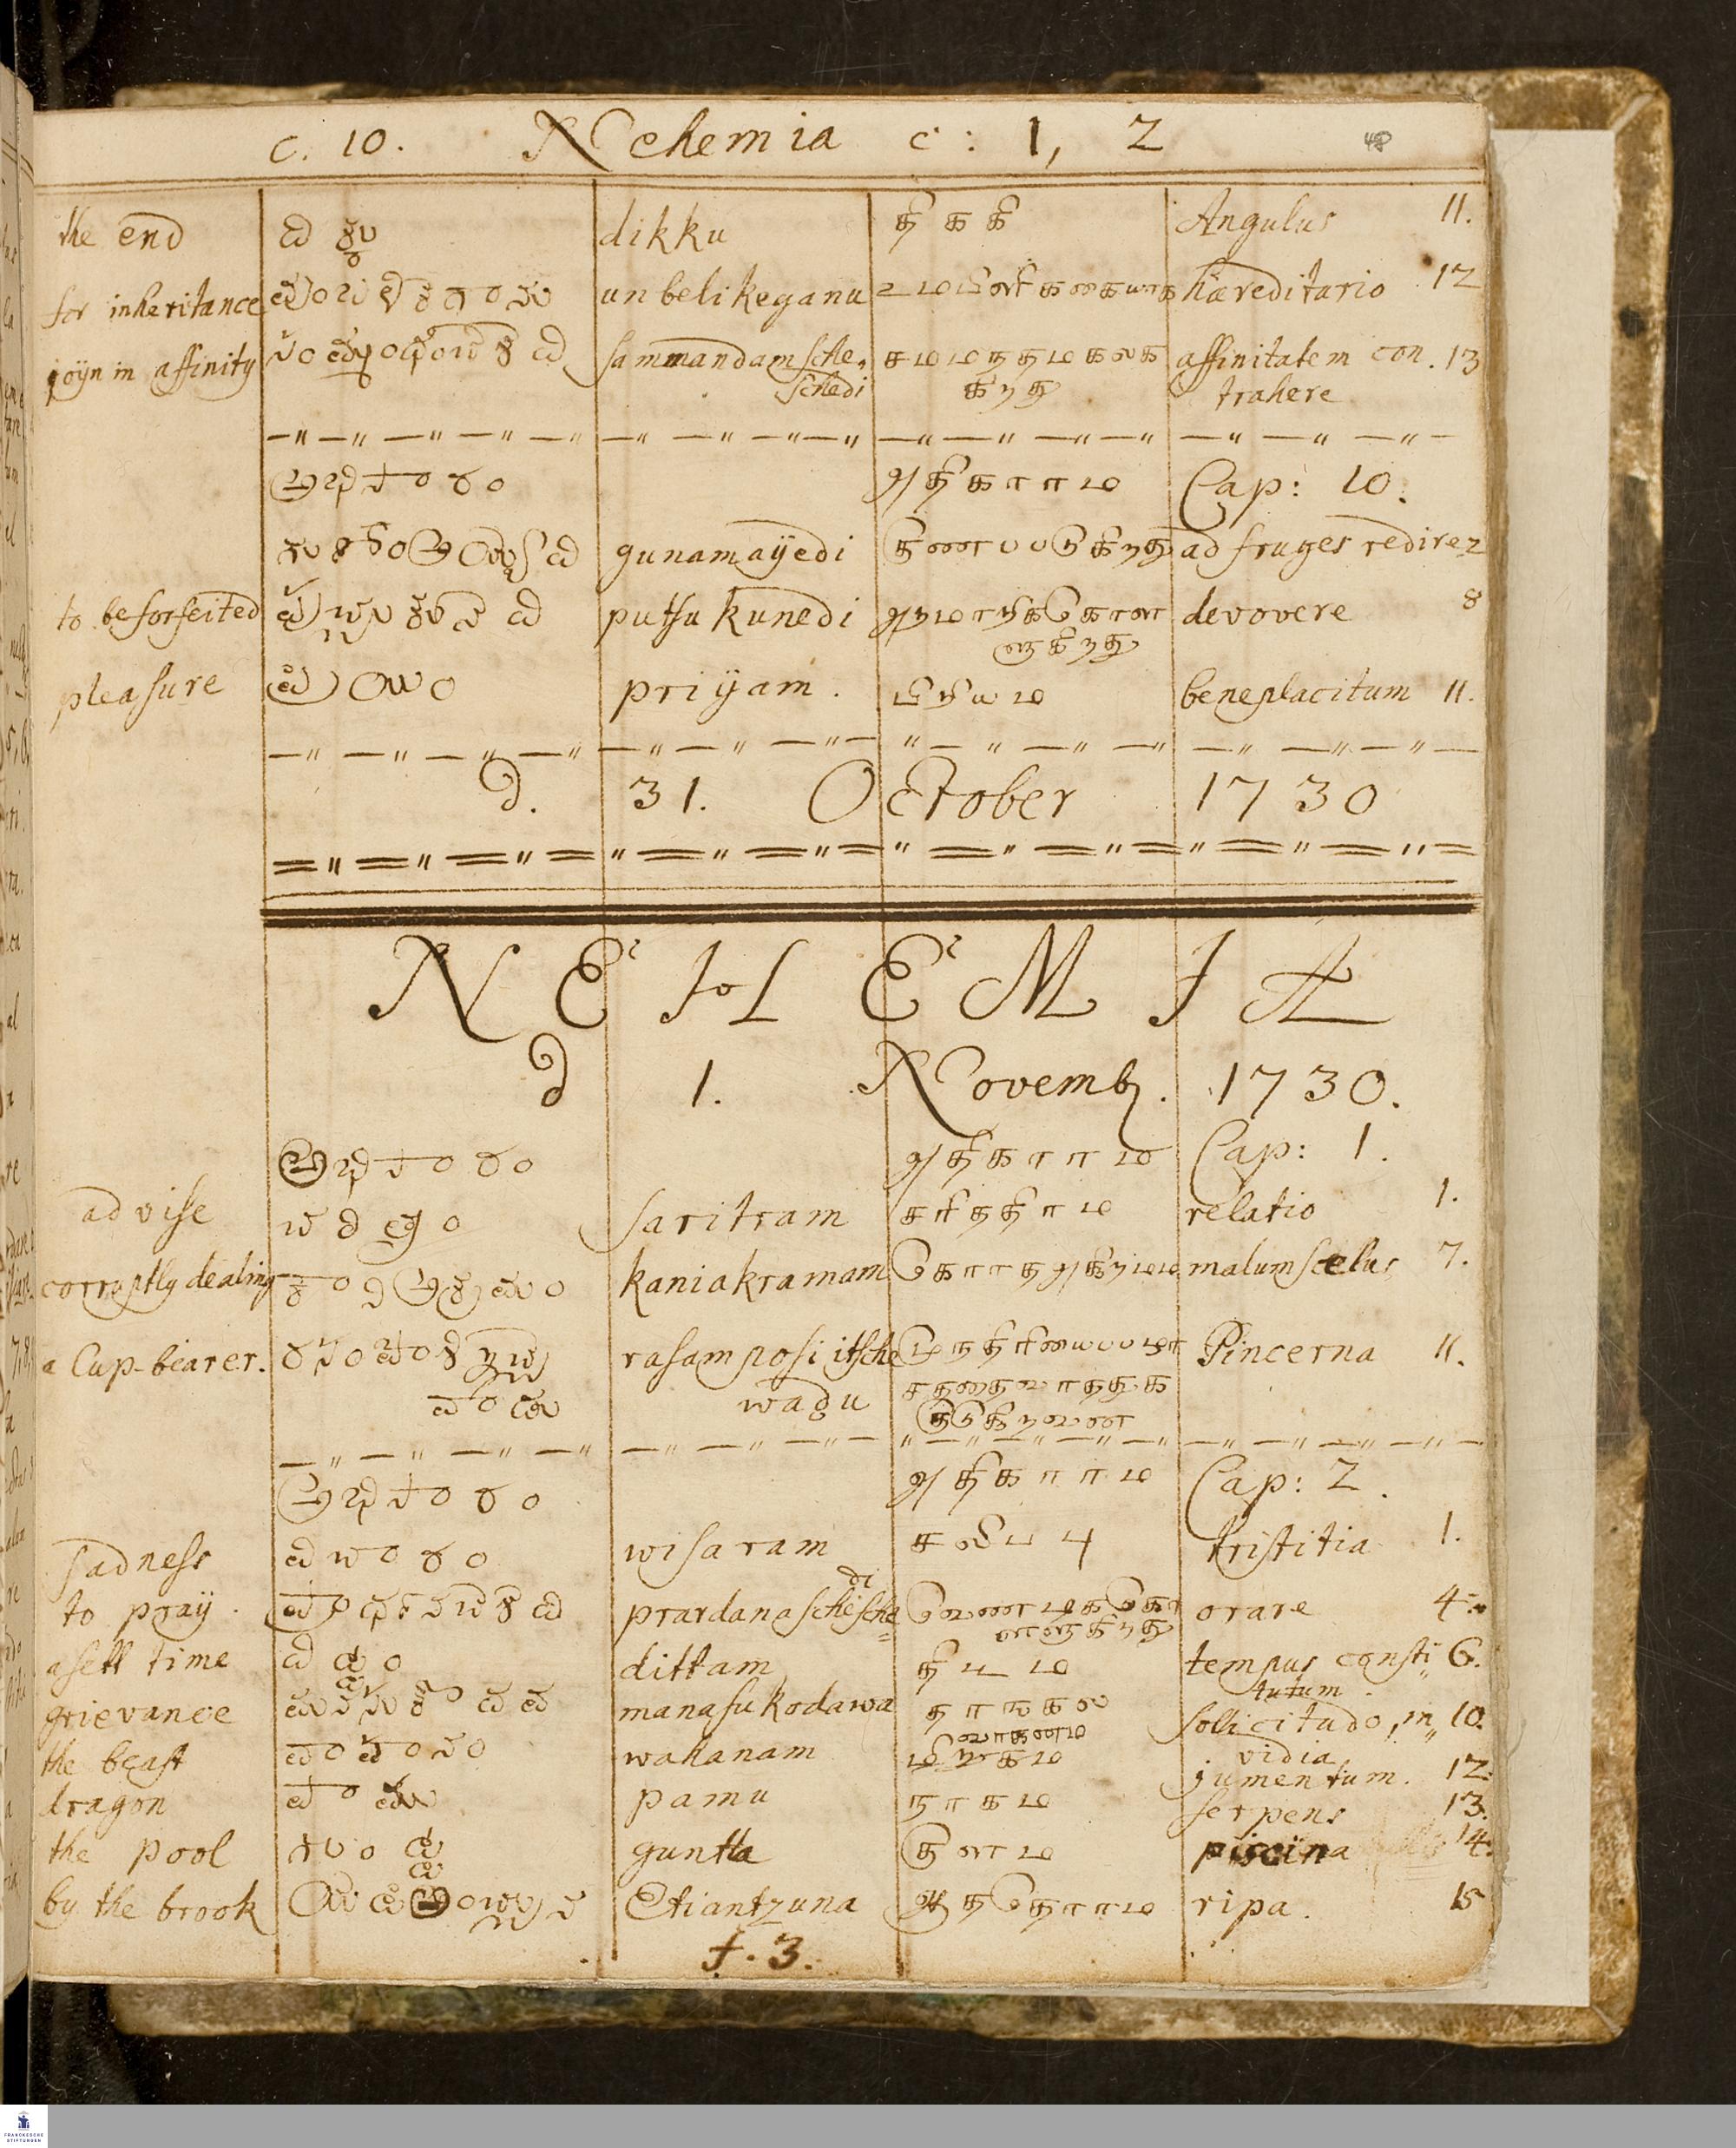 c. 10. Nehemia c: 1, 2
the end దిక్కు dikku திககி Angulus 11.
for inheritance unbelikeganu hæreditario 12
joyn in affinity sammandamsche, சமமநதம affinitatem con. 13
schedi கிறது trahere
అధికారం அதிகாரம Cap: 10.
gunamaÿedi குணபபடுகிறது ad fruges redire 2
to be forfeited putsukunedi devovere 8
ளுகிறது
pleasure ప్రియం priÿam. பிறியம beneplacitum 11.
d. 31. October 1730
NEHEMIA
d 1. Novemb. 1730.
అధికారం அதிகாரம Cap: 1.
advise చరిత్రం saritram சரித்திரம relatio 1.
corruptly dealing kaniakramam malum scelus 7.
a Cup-bearer. rasam posi itsche Pincerna 11.
వాడు wadu
குடுகிறவன
అధికారం அதிகாரம Cap: 2.
Sadness విచారం wisaram சலிபபு tristitia 1.
di
to praÿ. ప్రార్ధనచేసేది prardanaschesche orare 4.
ளளுகிறது
a sett time దిట్టం dittam திடடம tempus consti 6.
tutum
grievance manasukodawa தாஙகல sollicitudo, in 10.
வாகனம vidia
the beast వాహనం wahanam மிறுகம jumentum. 12.
dragon పాము pamu நாகம serpens 13.
the pool గుంట guntta குளம piscina 14.
by the brook Etiantzuna ஆததோரம ripa. 15
f. 3.
FRANCKESCHE
STIFTUNGEN